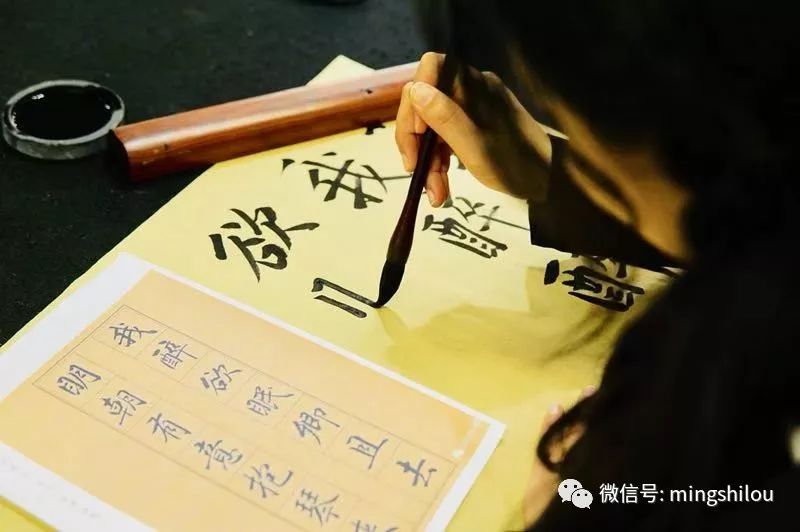 我醉
欲
我醉欲眠卿且去
明朝有意抱琴
微信号: mingshilou